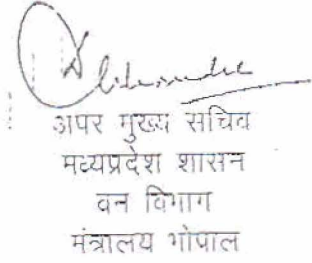 अपर मुख्य सचिव
मध्यप्रदेश शासन
वन विभाग
मंत्रालय भोपाल